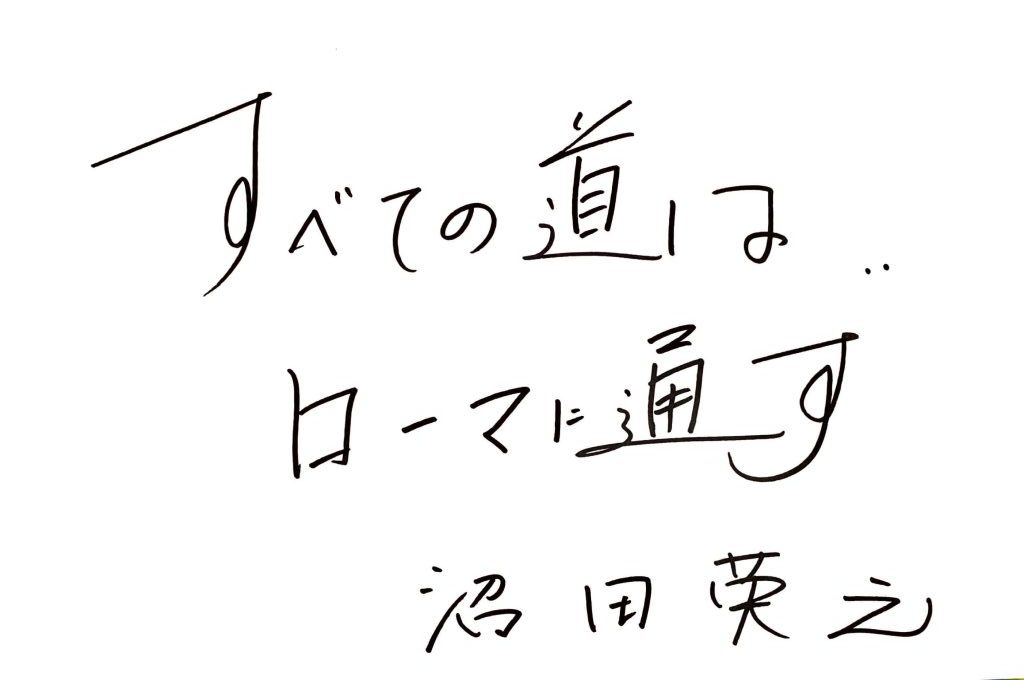 すべての道は
ローマに通ず
沼田英之